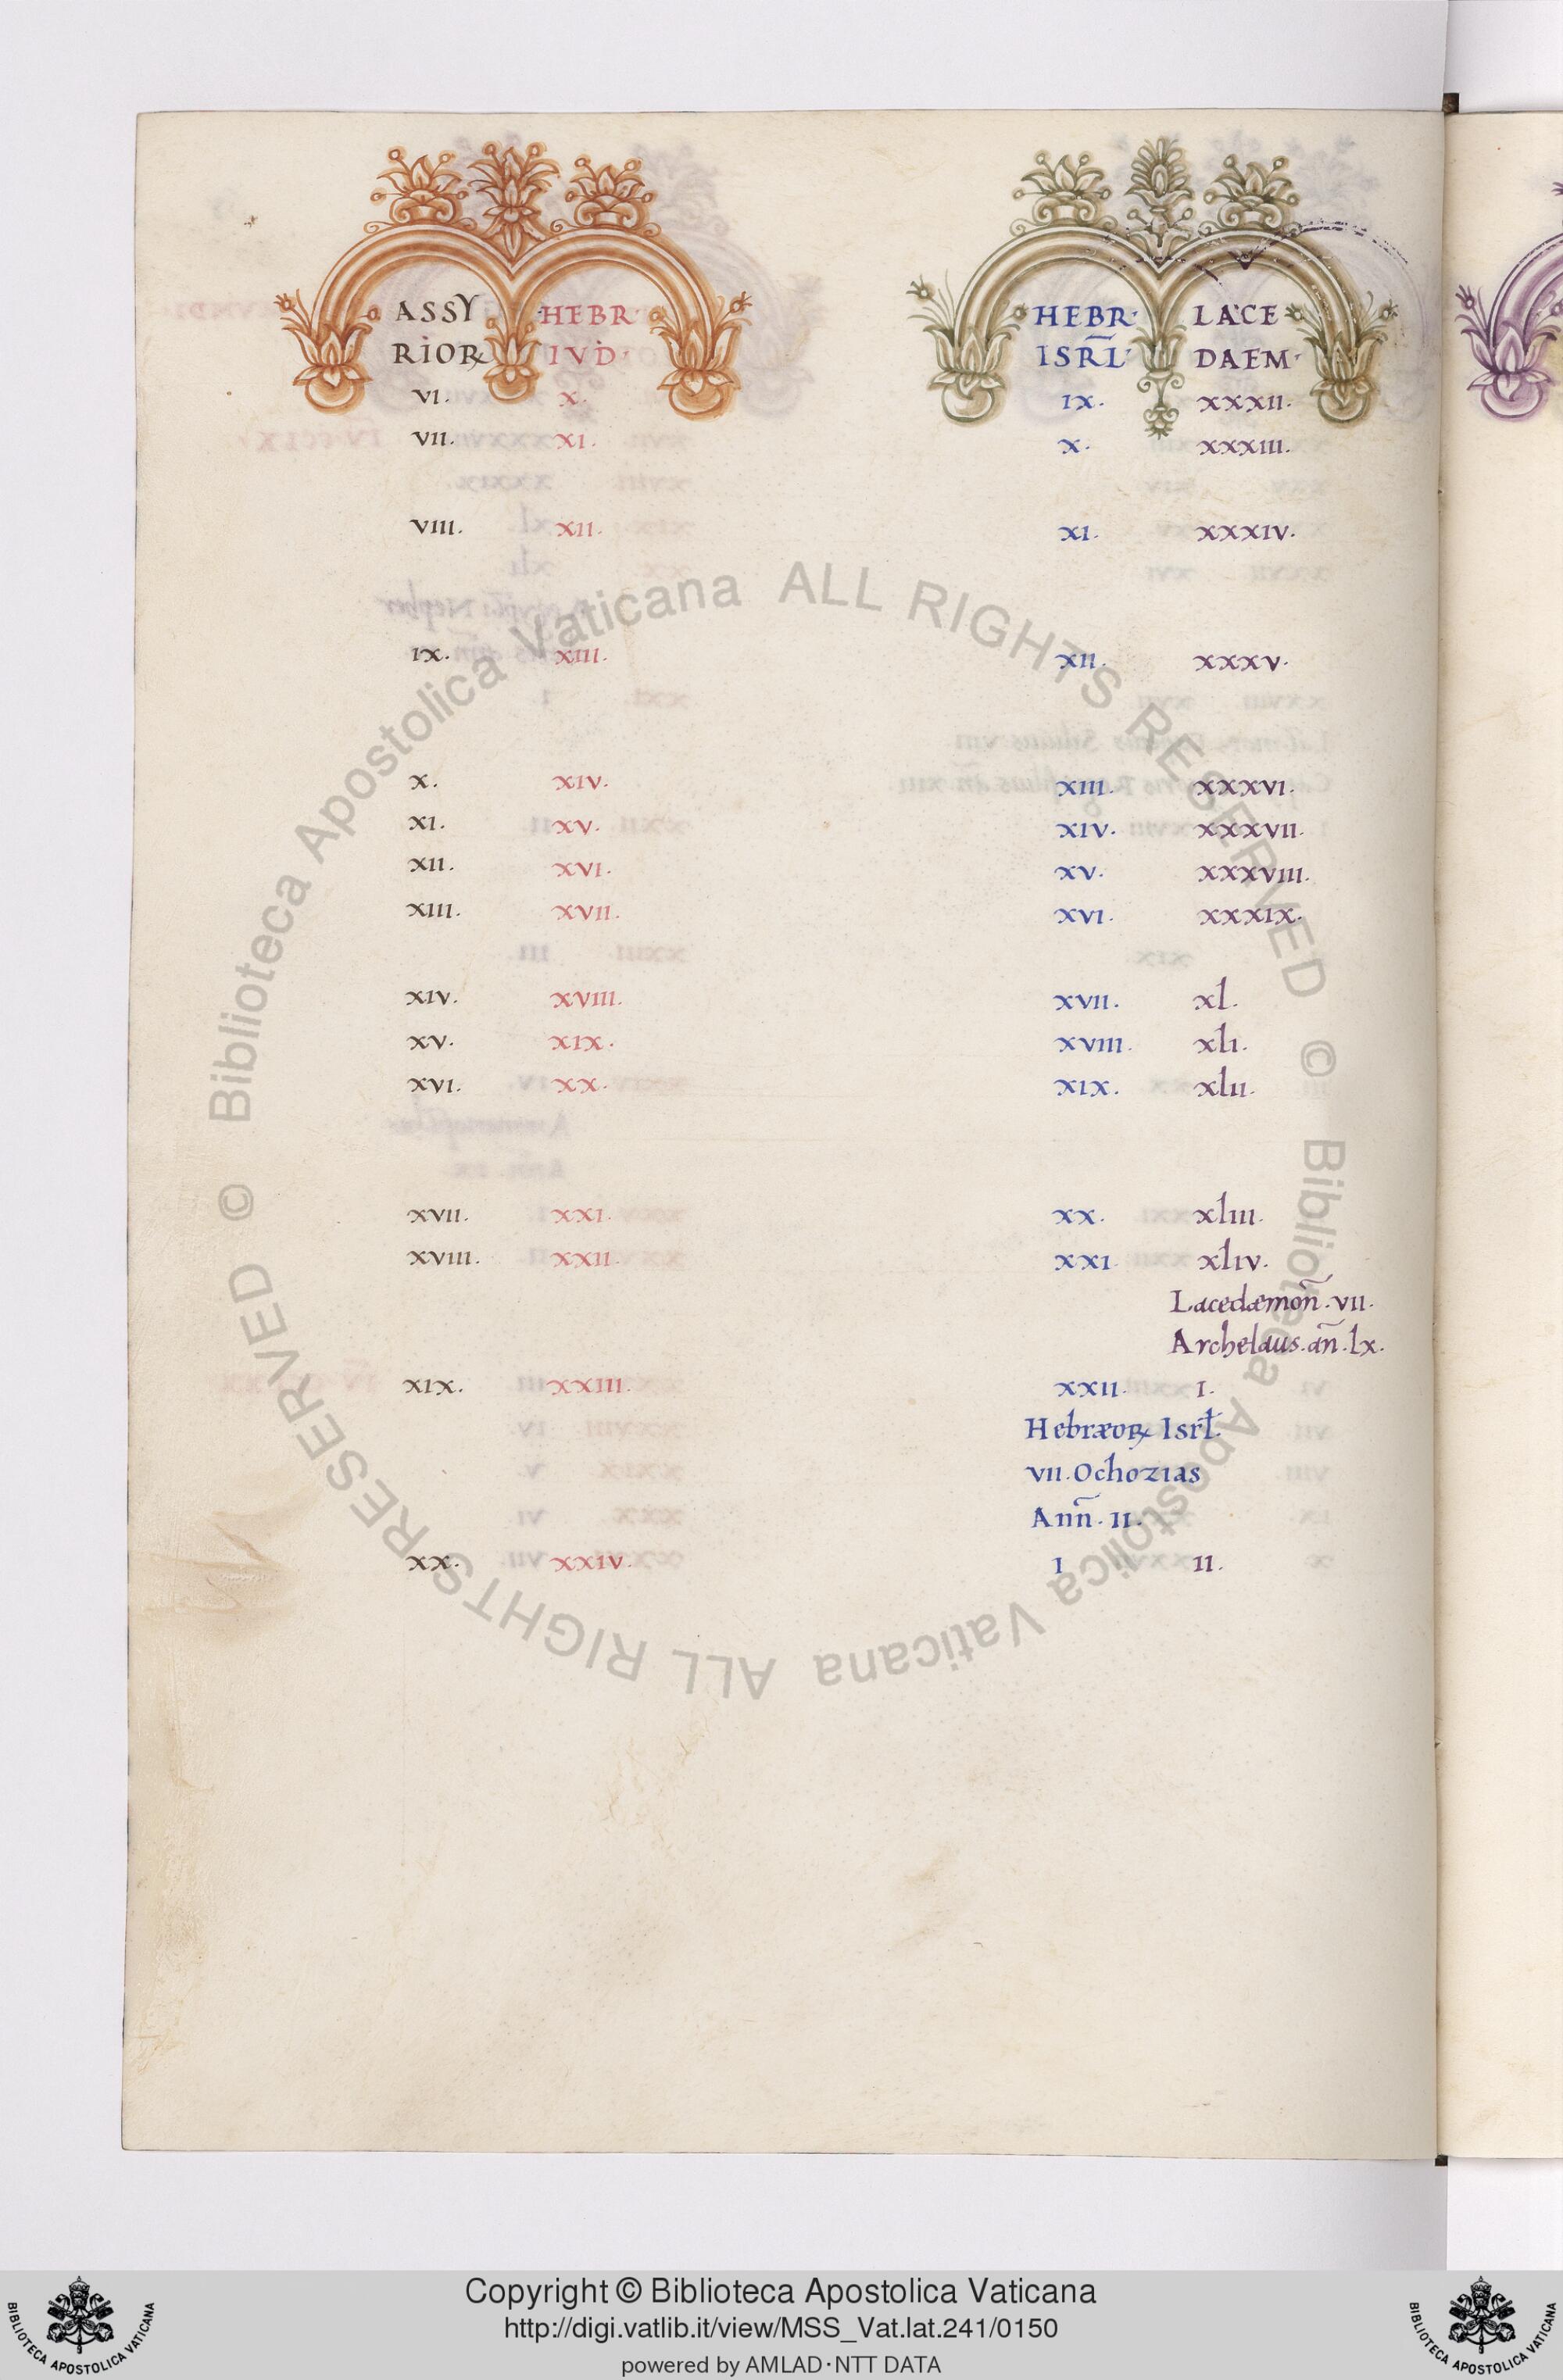 ASSY HEBR· HEBR· LACE
RIOR IVD· ISRL̃· DAEM·
VI. X. IX. XXXII.
VII. XI. X. XXXIII.
VIII. XII. XI. XXXIV.
IX. XIII. XII. XXXV.
X. XIV. XIII. XXXVI.
XI. XV. XIV. XXXVII.
XII. XVI. XV. XXXVIII.
XIII. XVII. XVI. XXXIX.
XIV. XVIII. XVII. xl.
XV. XIX. XVIII. xlı.
XVI. XX. XIX. xlıı.
XVII. XXI. XX. xlııı.
XVIII. XXII. XXI. xlıv.
Lacedæmoñ. VII.
Archelaus. añ. lx.
XIX. XXIII. XXII. I.
Hebræoꝝ Isrł.
VII. Ochozias
Anñ. II.
XX. XXIV. I II.
© Biblioteca Apostolica Vaticana ALL RIGHTS RESERVED © Biblioteca Apostolica Vaticana ALL RIGHTS RESERVED
Copyright © Biblioteca Apostolica Vaticana
http://digi.vatlib.it/view/MSS_Vat.lat.241/0150
powered by AMLAD·NTT DATA
BIBLIOTECA APOSTOLICA VATICANA
BIBLIOTECA APOSTOLICA VATICANA